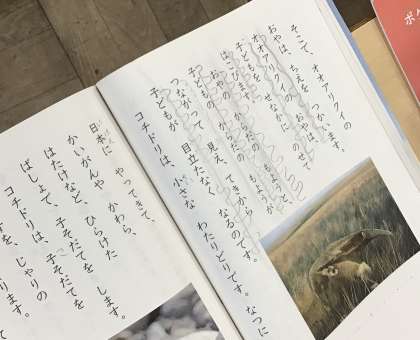 そこで、 オオアリクイの
おやは、 ちえを つかいます。
オオアリクイの おやは、
子どもを せなかに のせて
はこびます。
子どもの からだの もようが
おやの もようと
つながって 見え、 てきから
子どもが 目立たなく なるのです。
コチドリは、 小さな わたりどりです。 なつに
日本に やってきて、 かわら、
かいがんや はたけなど、 ひらけた
ばしょで、 子そだてを します。
コチドリは、 じゃりの